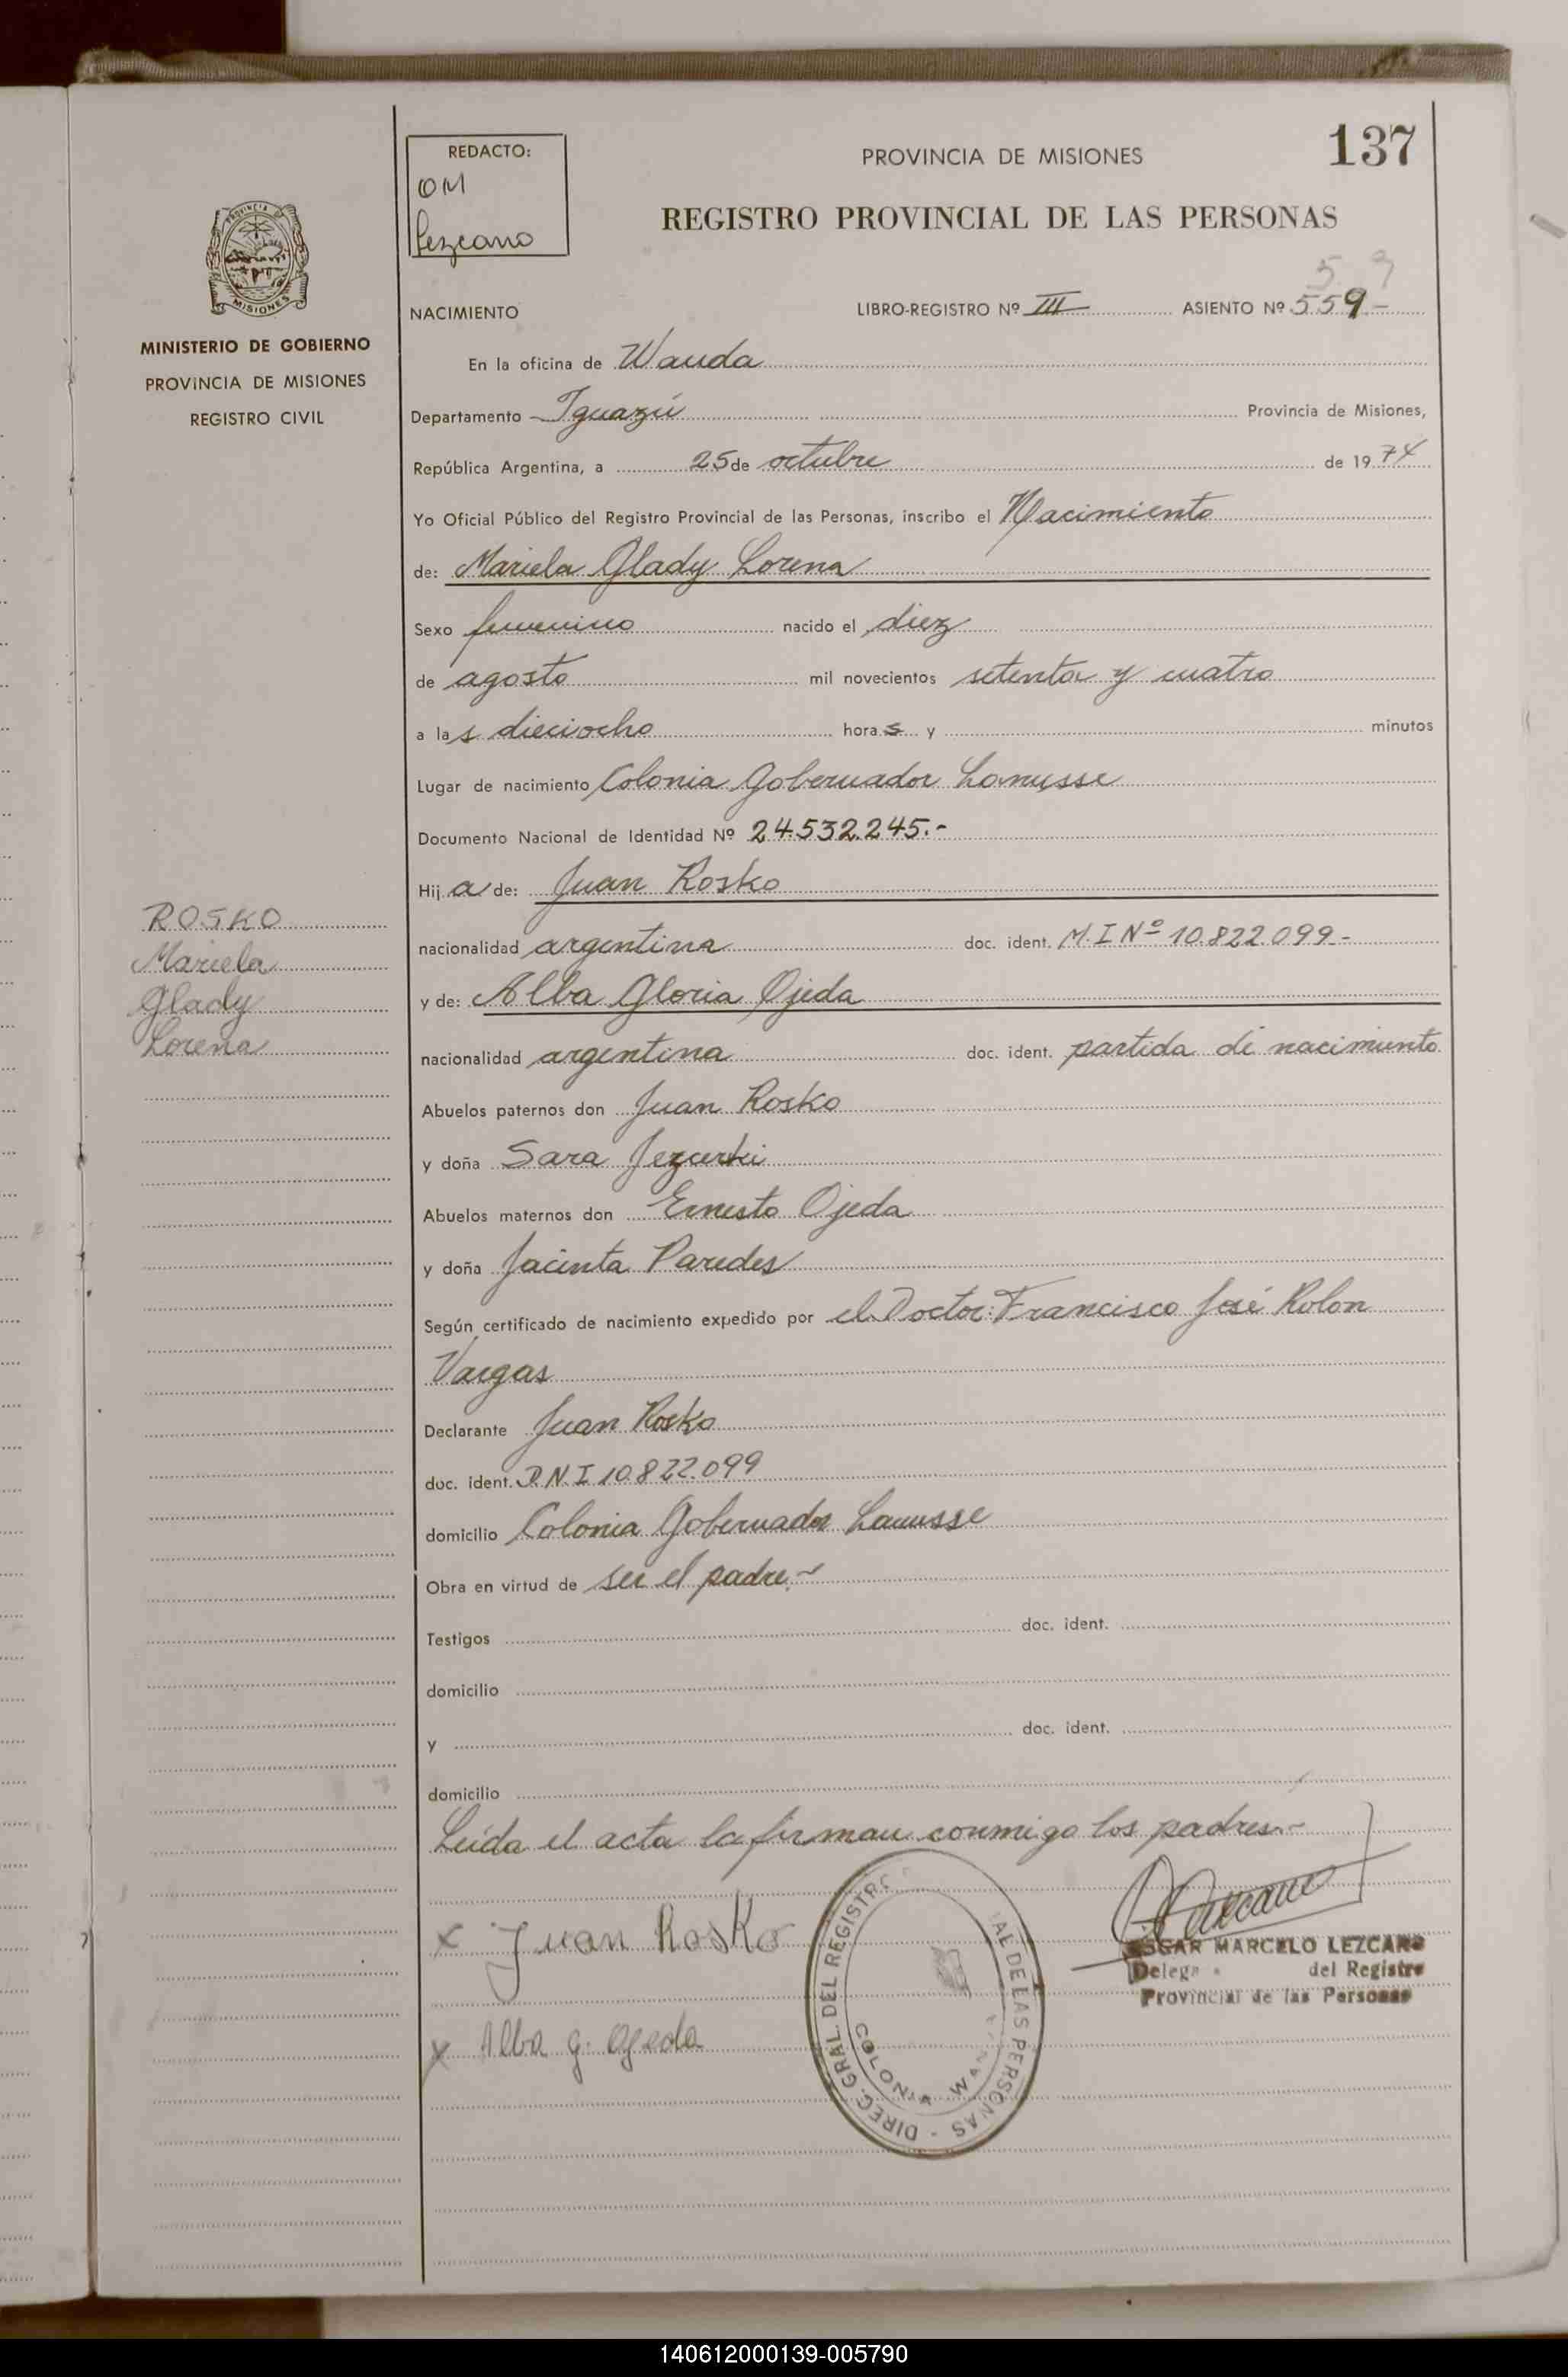 137
REDACTO:
OM
Lezcano
PROVINCIA DE MISIONES
REGISTRO PROVINCIAL DE LAS PERSONAS
PROVINCIA
MISIONES
MINISTERIO DE GOBIERNO
PROVINCIA DE MISIONES
REGISTRO CIVIL
NACIMIENTO LIBRO-REGISTRO Nº III ASIENTO Nº 559-
En la oficina de Wanda
Departamento Iguazú Provincia de Misiones,
República Argentina, a 25 de octubre de 1974
Yo Oficial Público del Registro Provincial de las Personas, inscribo el Nacimiento
de: Mariela Glady Lorena
Sexo femenino nacido el diez
de agosto mil novecientos setenta y cuatro
a las dieciocho horas y minutos
Lugar de nacimiento Colonia Gobernador Lanusse
Documento Nacional de Identidad Nº 24.532.245.-
Hija de: Juan Rosko
nacionalidad argentina doc. ident. M.I Nº 10.822.099-
y de: Alba Gloria Ojeda
nacionalidad argentina doc. ident. partida de nacimiento
Abuelos paternos don Juan Rosko
y doña Sara
Abuelos maternos don Ernesto Ojeda
y doña Jacinta Paredes
Según certificado de nacimiento expedido por el Doctor: Francisco José Rolon
Vargas
Declarante Juan Rosko
doc. ident. D.N.I 10.822.099
domicilio Colonia Gobernador Lanusse
Obra en virtud de ser el padre.-
Testigos doc. ident.
domicilio
y doc. ident.
domicilio
Leída el acta la firman conmigo los padres.-
ROSKO
Mariela
Glady
Lorena
x Juan Rosko
x Alba G. Ojeda
DIREC. GRAL. DEL REGISTRO AL DE LAS PERSONAS -
COLONIA WAN
OSCAR MARCELO LEZCANO
Delega del Registro
Provincial de las Personas
140612000139-005790